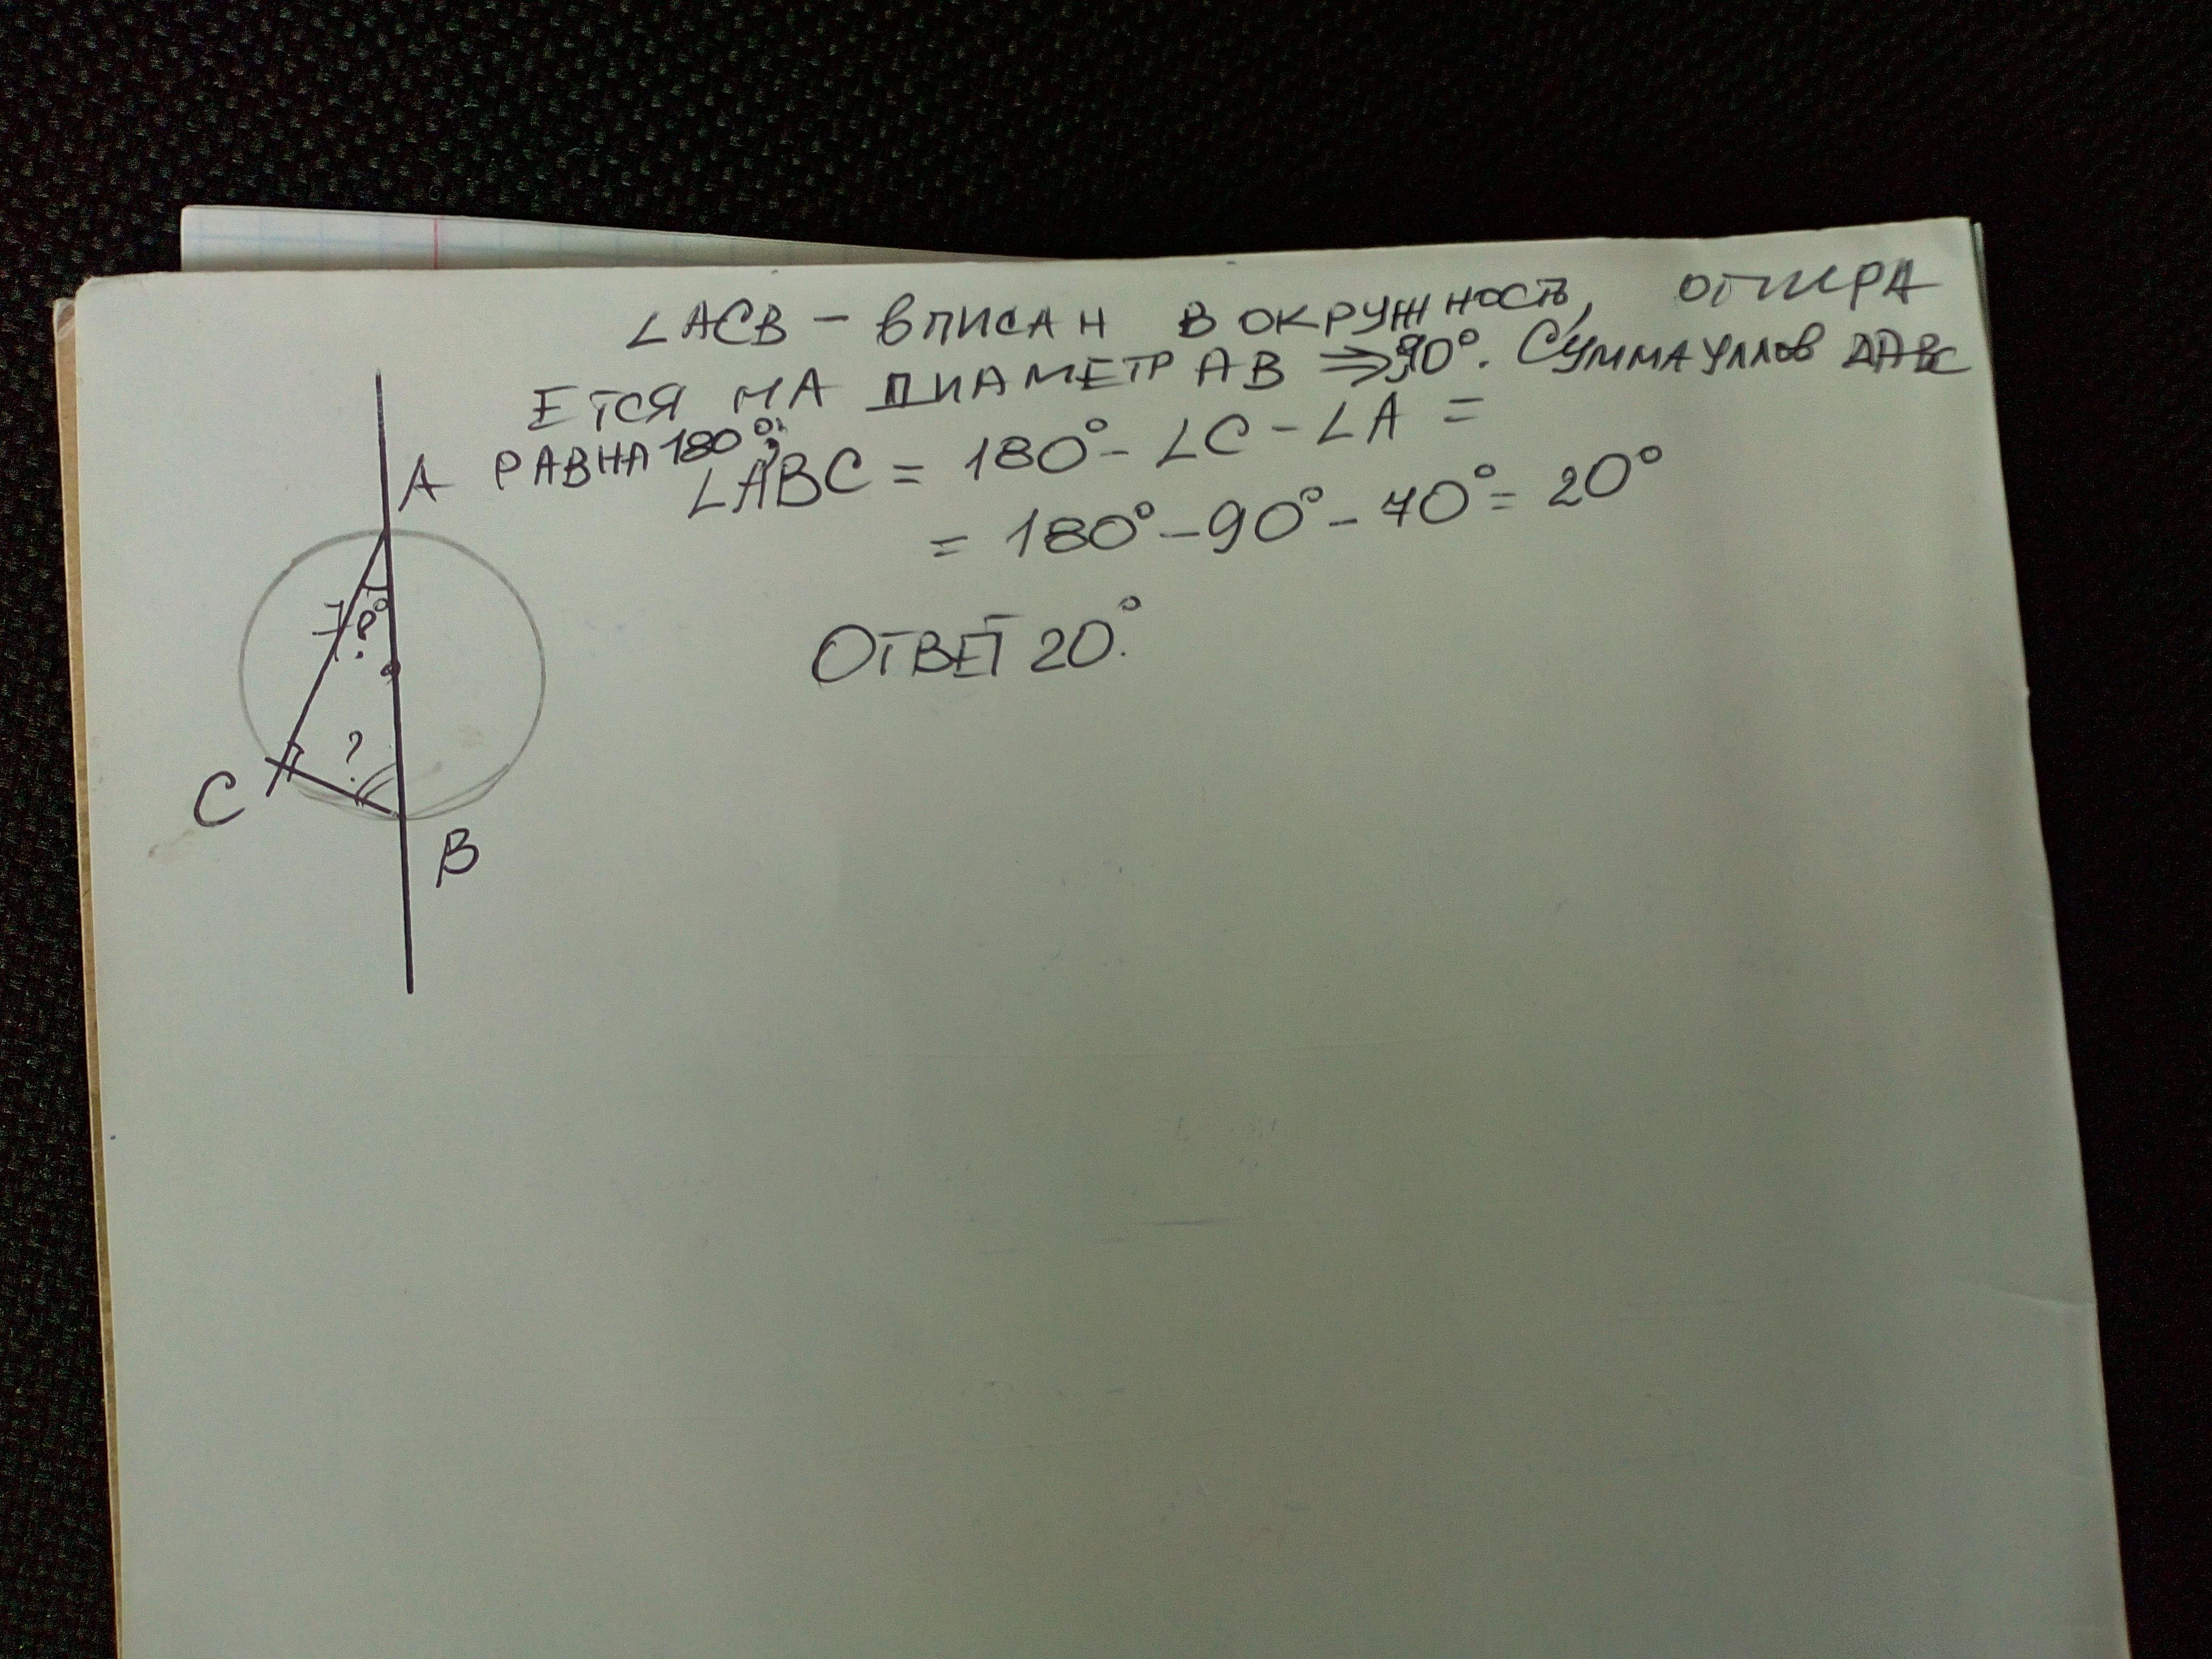 ∠ACB – вписан в окружность, опира
ется на диаметр AB ⇒ 90°. Сумма углов ΔABC
равна 180°;
∠ABC = 180° - ∠C - ∠A =
= 180° - 90° - 70° = 20°
Ответ 20°.
A
?
C
B